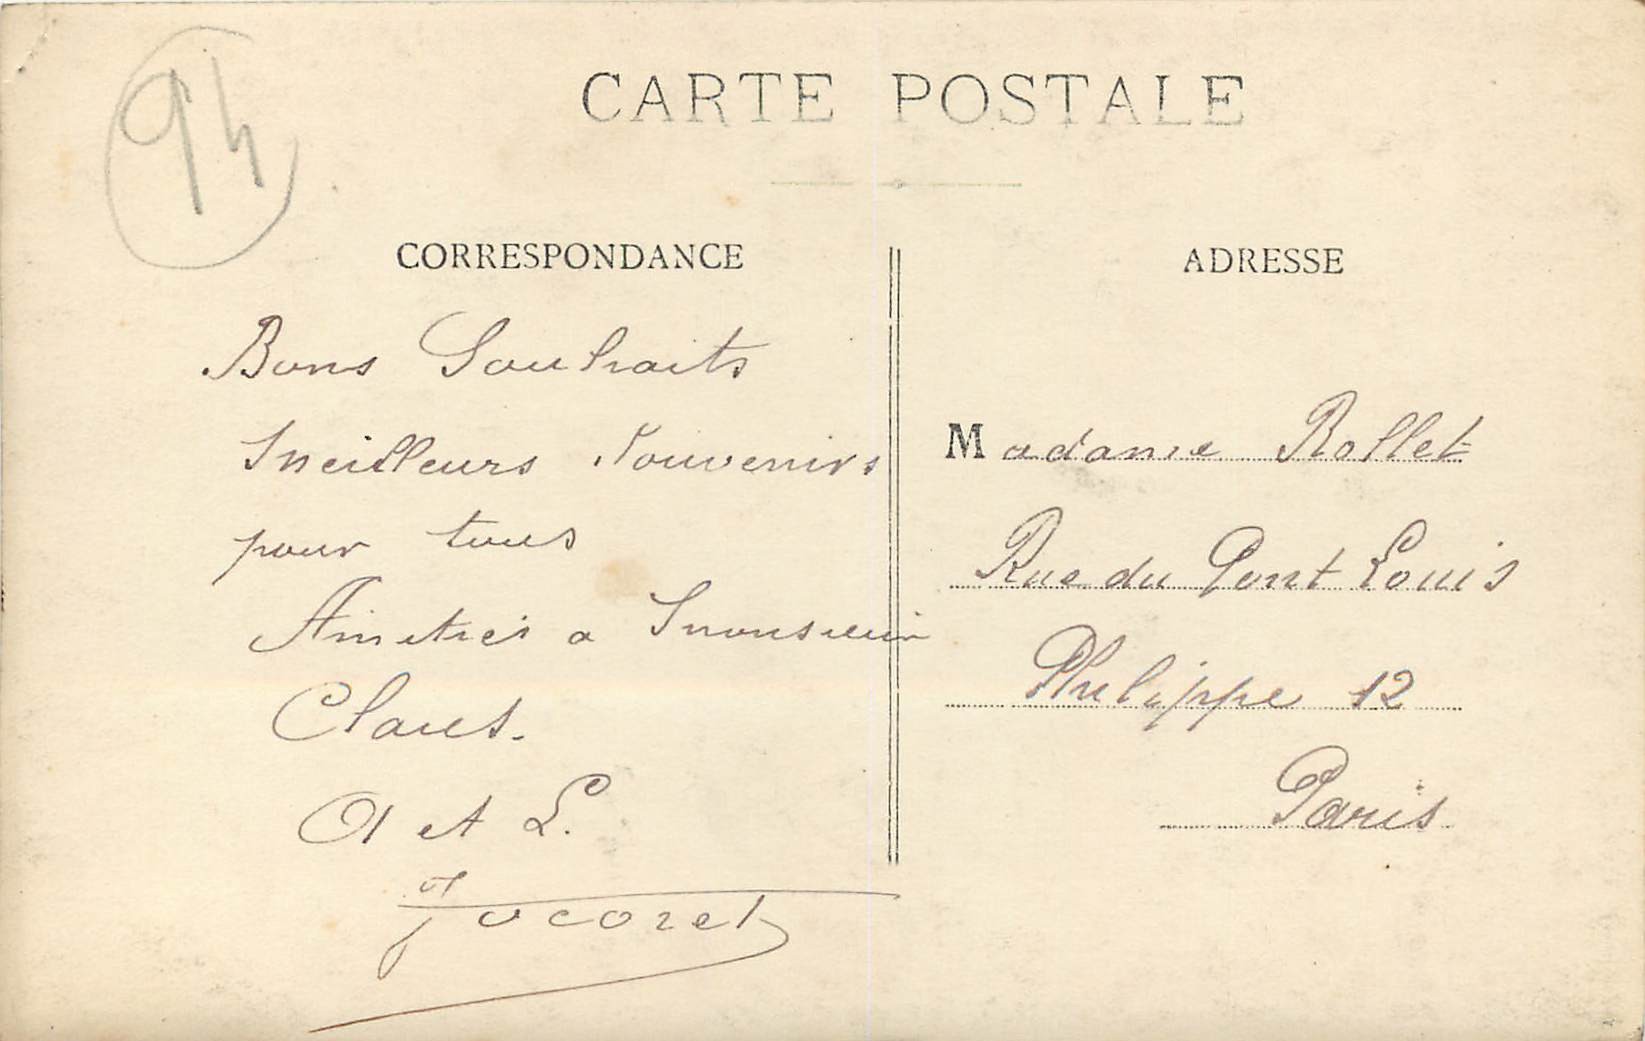 94
CARTE POSTALE
CORRESPONDANCE
Bons Souhaits
Meilleurs Souvenirs
pour tous
Amitiés a Monsieur
Claus.
A et L.
Jocoret
ADRESSE
Madame Rollet
Rue du Pont Louis
Philippe 12
Paris